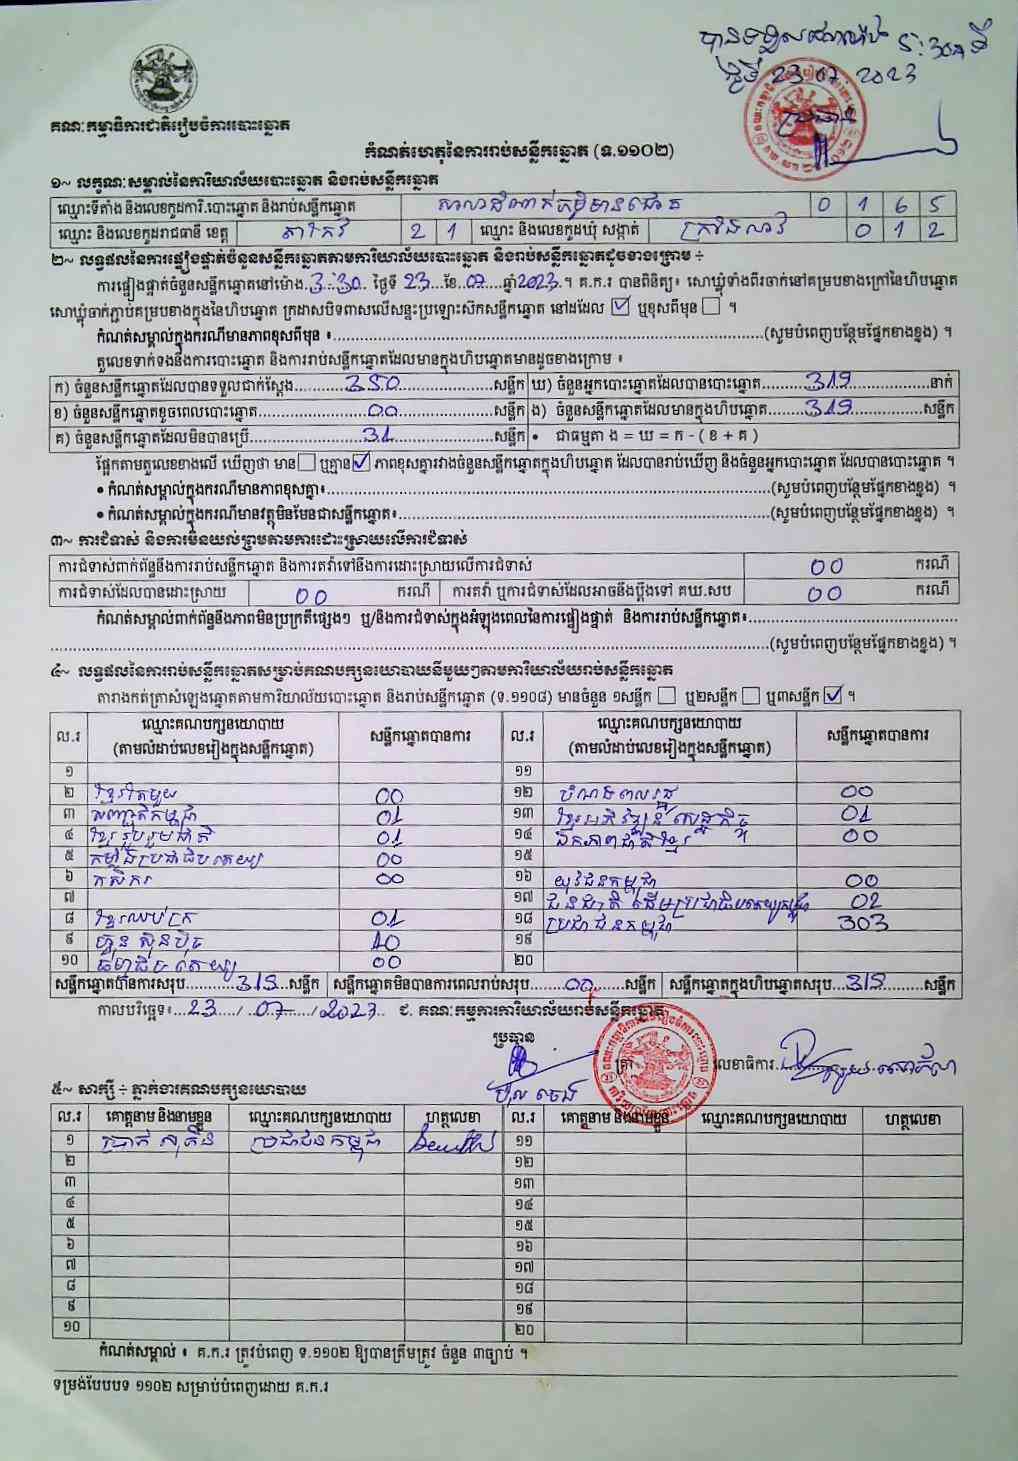 បានទទួលនៅម៉ោង ៥:30 នាទី
ថ្ងៃទី 23 07 2023
ប្រធាន
គណៈកម្មាធិការជាតិរៀបចំការបោះឆ្នោត
កំណត់ហេតុនៃការរាប់សន្លឹកឆ្នោត (ទ.១១០២)
១~ លក្ខណៈសម្គាល់នៃការិយាល័យបោះឆ្នោត និងរាប់សន្លឹកឆ្នោត
ឈ្មោះទីតាំង និងលេខកូដការិ.បោះឆ្នោត និងរាប់សន្លឹកឆ្នោត សាលាដំណាក់ភូមិមានជោគ 0 1 6 5
ឈ្មោះ និងលេខកូដរាជធានី ខេត្ត តាកែវ 2 1 ឈ្មោះ និងលេខកូដឃុំ សង្កាត់ ក្រាំងលាវ 0 1 2
២~ លទ្ធផលនៃការផ្ទៀងផ្ទាត់ចំនួនសន្លឹកឆ្នោតតាមការិយាល័យបោះឆ្នោត និងរាប់សន្លឹកឆ្នោតដូចខាងក្រោម ÷
ការផ្ទៀងផ្ទាត់ចំនួនសន្លឹកឆ្នោតនៅម៉ោង 3:30 ថ្ងៃទី 23 ខែ 07 ឆ្នាំ 2023 ។ គ.ក.រ បានពិនិត្យ៖ សោឃ្លុំទាំងពីរចាក់នៅគម្របខាងក្រៅនៃហិបឆ្នោត
សោឃ្លុំចាក់ភ្ជាប់គម្របខាងក្នុងនៃហិបឆ្នោត ក្រដាសបិទពាសលើសន្ទះប្រឡោះស៊កសន្លឹកឆ្នោត នៅដដែល ☑ ឬខុសពីមុន ☐ ។
កំណត់សម្គាល់ក្នុងករណីមានភាពខុសពីមុន ៖ (សូមបំពេញបន្ថែមផ្នែកខាងខ្នង) ។
តួលេខទាក់ទងនឹងការបោះឆ្នោត និងការរាប់សន្លឹកឆ្នោតដែលមានក្នុងហិបឆ្នោតមានដូចខាងក្រោម ៖
ក) ចំនួនសន្លឹកឆ្នោតដែលបានទទួលជាក់ស្តែង 350 សន្លឹក ឃ) ចំនួនអ្នកបោះឆ្នោតដែលបានបោះឆ្នោត 319 នាក់
ខ) ចំនួនសន្លឹកឆ្នោតខូចពេលបោះឆ្នោត 00 សន្លឹក ង) ចំនួនសន្លឹកឆ្នោតដែលមានក្នុងហិបឆ្នោត 319 សន្លឹក
គ) ចំនួនសន្លឹកឆ្នោតដែលមិនបានប្រើ 31 សន្លឹក • ជាធម្មតា ង = ឃ = ក - ( ខ + គ )
ផ្អែកតាមតួលេខខាងលើ ឃើញថា មាន ☐ ឬគ្មាន ☑ ភាពខុសគ្នារវាងចំនួនសន្លឹកឆ្នោតក្នុងហិបឆ្នោត ដែលបានរាប់ឃើញ និងចំនួនអ្នកបោះឆ្នោត ដែលបានបោះឆ្នោត ។
• កំណត់សម្គាល់ក្នុងករណីមានភាពខុសគ្នា៖ (សូមបំពេញបន្ថែមផ្នែកខាងខ្នង) ។
• កំណត់សម្គាល់ក្នុងករណីមានវត្ថុមិនមែនជាសន្លឹកឆ្នោត៖ (សូមបំពេញបន្ថែមផ្នែកខាងខ្នង) ។
៣~ ការជំទាស់ និងការមិនយល់ព្រមតាមការដោះស្រាយលើការជំទាស់
ការជំទាស់ពាក់ព័ន្ធនឹងការរាប់សន្លឹកឆ្នោត និងការតវ៉ាទៅនឹងការដោះស្រាយលើការជំទាស់ 00 ករណី
ការជំទាស់ដែលបានដោះស្រាយ 00 ករណី ការតវ៉ា ឬការជំទាស់ដែលអាចនឹងប្តឹងទៅ គឃ.សប 00 ករណី
កំណត់សម្គាល់ពាក់ព័ន្ធនឹងភាពមិនប្រក្រតីផ្សេងៗ ឬ/និងការជំទាស់ក្នុងអំឡុងពេលនៃការផ្ទៀងផ្ទាត់ និងការរាប់សន្លឹកឆ្នោត៖
(សូមបំពេញបន្ថែមផ្នែកខាងខ្នង) ។
៤~ លទ្ធផលនៃការរាប់សន្លឹកឆ្នោតសម្រាប់គណបក្សនយោបាយនីមួយៗតាមការិយាល័យរាប់សន្លឹកឆ្នោត
តារាងកត់ត្រាសំឡេងឆ្នោតតាមការិយាល័យបោះឆ្នោត និងរាប់សន្លឹកឆ្នោត (ទ.១១០៨) មានចំនួន ១សន្លឹក ☐ ឬ២សន្លឹក ☐ ឬ៣សន្លឹក ☑ ។
ល.រ ឈ្មោះគណបក្សនយោបាយ (តាមលំដាប់លេខរៀងក្នុងសន្លឹកឆ្នោត) សន្លឹកឆ្នោតបានការ ល.រ ឈ្មោះគណបក្សនយោបាយ (តាមលំដាប់លេខរៀងក្នុងសន្លឹកឆ្នោត) សន្លឹកឆ្នោតបានការ
១ ១១
២ ខ្មែរតែមួយ 00 ១២ បំណងពលរដ្ឋ 00
៣ សញ្ជាតិកម្ពុជា 01 ១៣ ខ្មែរអភិវឌ្ឍន៍សេដ្ឋកិច្ច 01
៤ ខ្មែររួបរួមជាតិ 01 ១៤ ឯកភាពជាតិខ្មែរ 00
៥ កម្លាំងប្រជាធិបតេយ្យ 00 ១៥
៦ កសិករ 00 ១៦ យុវជនកម្ពុជា 00
៧ ១៧ ជនជាតិដើមប្រជាធិបតេយ្យកម្ពុជា 02
៨ ខ្មែរឈប់ក្រ 01 ១៨ ប្រជាជនកម្ពុជា 303
៩ ហ៊្វុនស៊ិនប៉ិច 10 ១៩
១០ ធម្មាធិបតេយ្យ 00 ២០
សន្លឹកឆ្នោតបានការសរុប 319 សន្លឹក សន្លឹកឆ្នោតមិនបានការពេលរាប់សរុប 00 សន្លឹក សន្លឹកឆ្នោតក្នុងហិបឆ្នោតសរុប 319 សន្លឹក
កាលបរិច្ឆេទ៖ 23 / 07 / 2023 ជ. គណៈកម្មការការិយាល័យរាប់សន្លឹកឆ្នោត
ប្រធាន
ត្រា លេខាធិការ
៥~ សាក្សី ÷ ភ្នាក់ងារគណបក្សនយោបាយ
ល.រ គោត្តនាម និងនាមខ្លួន ឈ្មោះគណបក្សនយោបាយ ហត្ថលេខា ល.រ គោត្តនាម និងនាមខ្លួន ឈ្មោះគណបក្សនយោបាយ ហត្ថលេខា
១ ប្រាក់ សុគីន ប្រជាជនកម្ពុជា ១១
២ ១២
៣ ១៣
៤ ១៤
៥ ១៥
៦ ១៦
៧ ១៧
៨ ១៨
៩ ១៩
១០ ២០
កំណត់សម្គាល់ ៖ គ.ក.រ ត្រូវបំពេញ ទ.១១០២ ឱ្យបានត្រឹមត្រូវ ចំនួន ៣ច្បាប់ ។
ទម្រង់បែបបទ ១១០២ សម្រាប់បំពេញដោយ គ.ក.រ